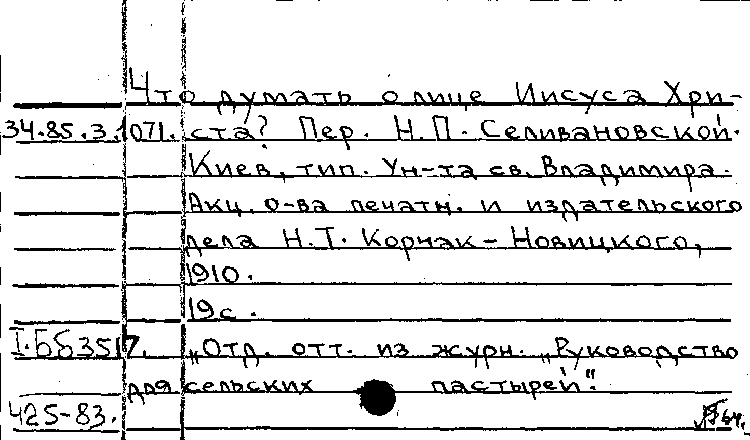 Что думать о лице Иисуса Хри-
34.85.3.1071. ста? Пер. Н.П. Селивановской.
Киев, тип. Ун-та св. Владимира.
Акц. о-ва печатн. и издательского
дела Н.Т. Корчак-Новицкого,
1910.
19с.
I.ББ3517. „Отд. отт. из журн. „Руководство
для сельских пастырей".
425-83.